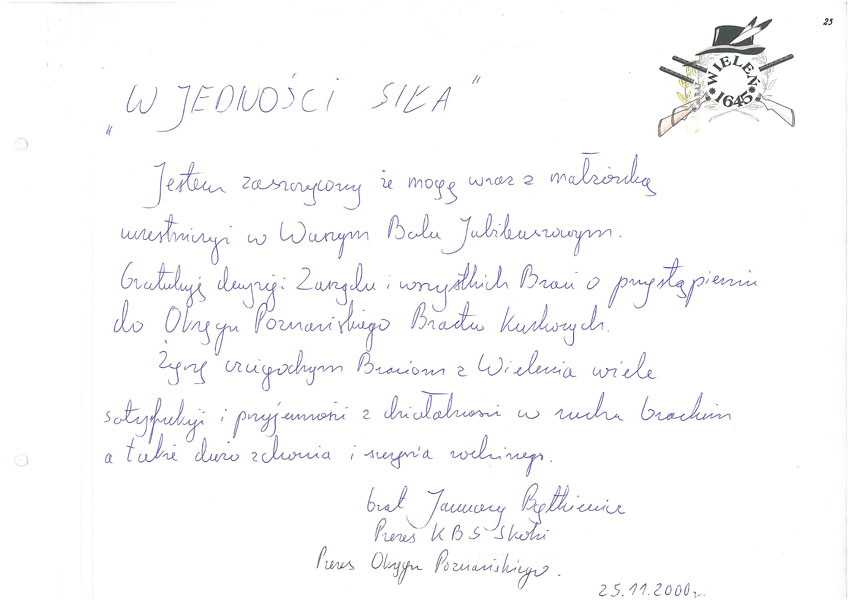 25
WIELEŃ
* 1645 *
„W JEDNOŚCI SIŁA"
Jestem zaszczycony że mogę wraz z małżonką
uczestniczyć w Waszym Balu Jubileuszowym.
Gratuluję decyzji Zarządu i wszystkich Braci o przystąpieniu
do Okręgu Poznańskiego Bractw Kurkowych.
Życzę czcigodnym Braciom z Wielenia wiele
satysfakcji i przyjemności z działalności w ruchu brackim
a także dużo zdrowia i szczęścia rodzinnego.
brat January
Prezes KBS Skoki
Prezes Okręgu Poznańskiego.
25.11.2000r.